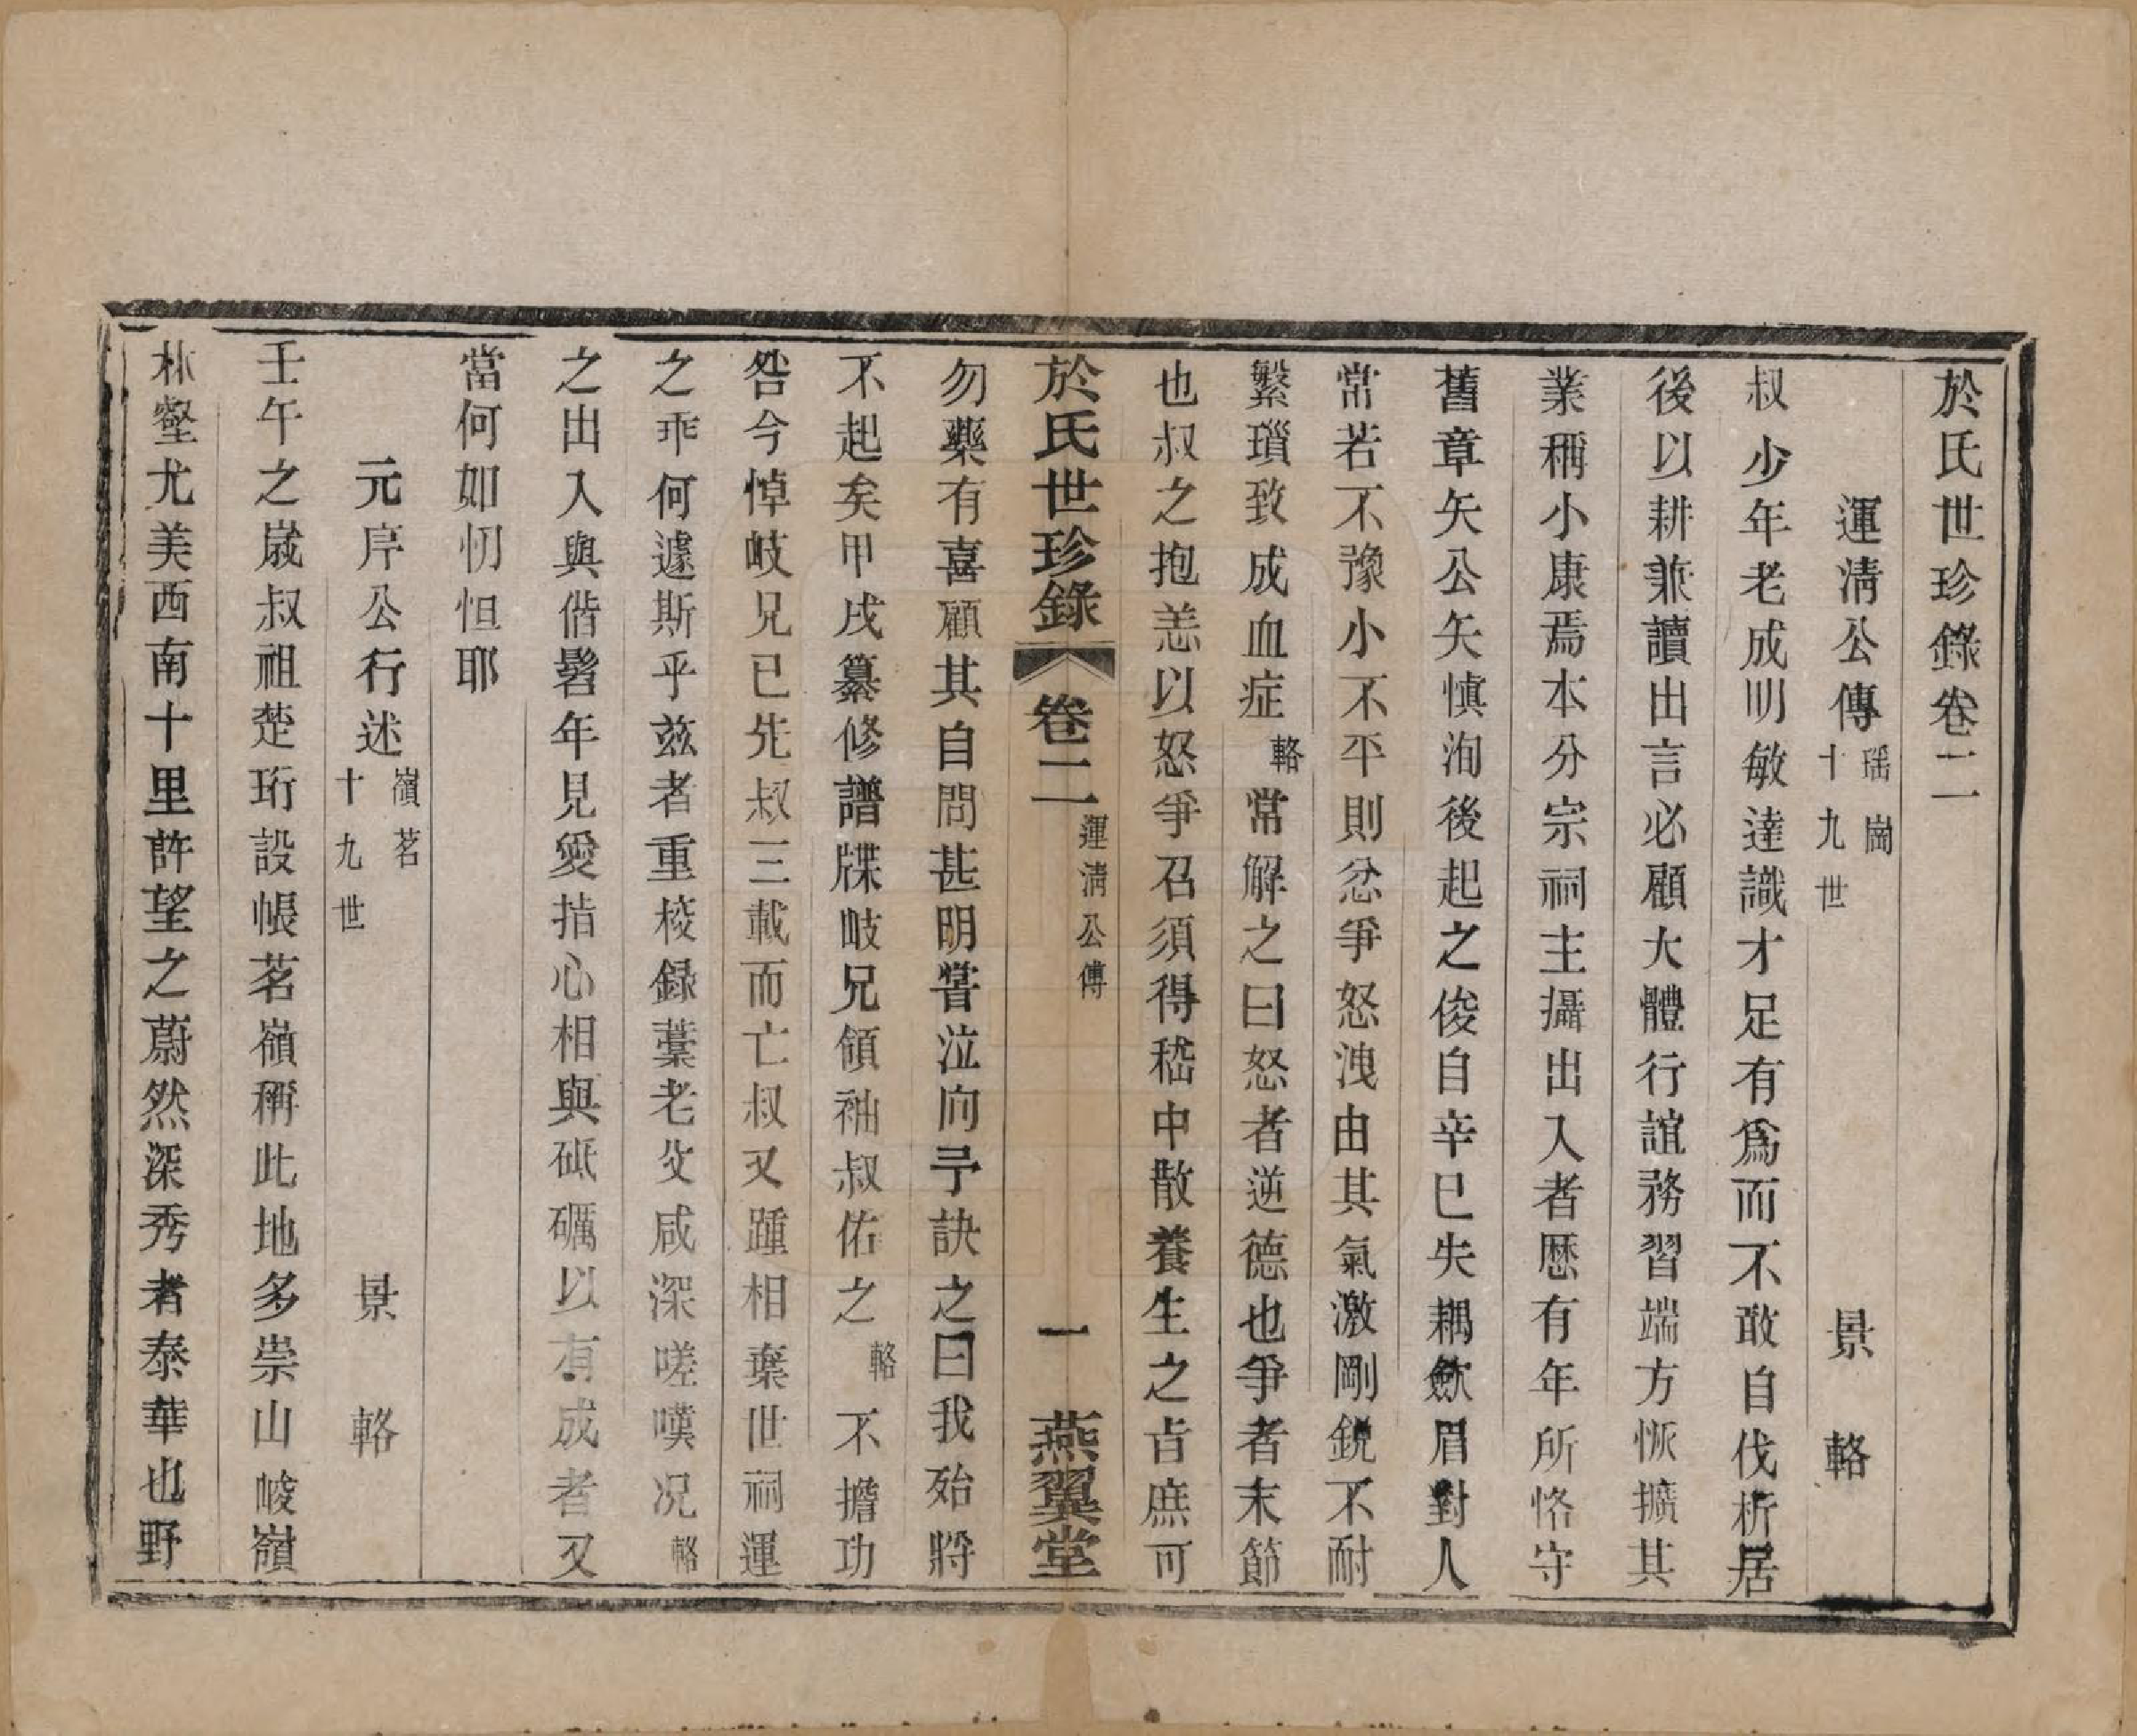 於氏世珍錄卷二
運淸公傳 瑶崗 十九世 景輅
叔少年老成明敏達識才足有爲而不敢自伐析居
後以耕兼讀出言必顧大體行誼務習端方恢擴其
業稱小康焉本分宗祠主攝出入者歷有年所恪守
舊章矢公矢愼洵後起之俊自辛巳失耦歛眉對人
常若不豫小不平則忿爭怒洩由其氣激剛銳不耐
繫瑣致成血症輅常解之曰怒者逆德也爭者末節
也叔之抱恙以怒爭召須得嵇中散養生之旨庶可
於氏世珍錄 卷二 運淸公傳 一 燕翼堂
勿藥有喜顧其自問甚明嘗泣向予訣之曰我殆將
不起矣甲戌纂修譜牒岐兄領袖叔佑之輅不擔功
咎今悼岐兄已先叔三載而亡叔又踵相棄世祠運
之乖何遽斯乎兹者重校錄藁老攵咸深嗟嘆况輅
之出入與偕髫年見愛指心相與砥礪以有成者又
當何如忉怛耶
元序公行述 嶺茗 十九世 景輅
壬午之歲叔祖楚珩設帳茗嶺稱此地多崇山峻嶺
林壑尤美西南十里許望之蔚然深秀者泰華也野